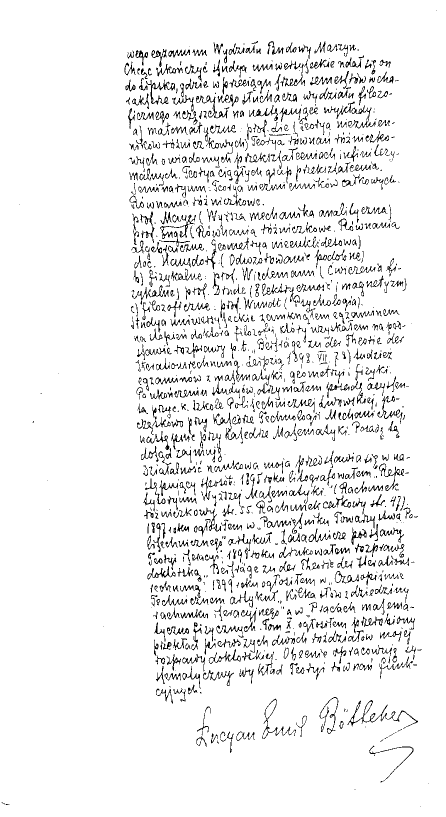 wego egzaminu Wydziału Budowy Maszyn.
Chcąc ukończyć studya uniwersyteckie udał się on
do Lipska, gdzie w przeciągu trzech semestrów w cha-
rakterze zwyczajnego słuchacza wydziału filozo-
ficznego uczęszczał na następujące wykłady:
a) matematyczne: prof. Lie (Teorya niezmien-
ników różniczkowych, Teorya równań różniczko-
wych o wiadomych przekształceniach infinitezy-
malnych. Teorya ciągłych grup przekształcenia.
Seminaryum: Teorya niezmienników całkowych.
Równania różniczkowe.
prof. Mayer (Wyższa mechanika analityczna)
prof. Engel (Równania różniczkowe. Równania
algebraiczne. Geometrya nieeuklidesowa)
doc. Hausdorf (Odwzorowanie podobne)
b) fizykalne: prof. Wiedemann (Ćwiczenia fi-
zykalne) prof. Drude (Elektryczność i magnetyzm)
c) filozoficzne: prof. Wundt (Psychologia).
Studya uniwersyteckie zamknąłem egzaminem
na stopień doktora filozofii, który uzyskałem na pod-
stawie rozprawy p. t. „Beiträge zu der Theorie der
Iterationsrechnung. Leipzig 1898. VII. 78) tudzież
egzaminów z matematyki, geometryi i fizyki.
Po ukończeniu studyów otrzymałem posadę asysten-
ta przy c. k. Szkole Politechnicznej Lwowskiej, po-
czątkowo przy Katedrze Technologii Mechanicznej,
następnie przy Katedrze Matematyki. Posadę tą
dotąd zajmuję.
Działalność naukowa moja przedstawia się w na-
stępujący sposób: 1895 roku litografowałem „Repe-
tytoryum Wyższej Matematyki" (Rachunek
różniczkowy str. 55. Rachunek całkowy str. 47).
1897 roku ogłosiłem w „Pamiętniku Towarzystwa Po-
litechnicznego" artykuł „Zasadnicze podstawy
Teoryi iteracyi". 1898 roku drukowałem rozprawę
doktorską „Beiträge zu der Theorie der Iterations-
rechnung". 1899 roku ogłosiłem w „Czasopiśmie
Technicznem artykuł „Kilka słów z dziedziny
rachunku iteracyjnego" a w Pracach matema-
tyczno fizycznych Tom X. ogłosiłem przerobiony
przekład pierwszych dwóch rozdziałów mojej
rozprawy doktorskiej. Obecnie opracowuję sy-
stematyczny wykład Teoryi równań funk-
cyjnych.
Łucyan Emil Böttcher